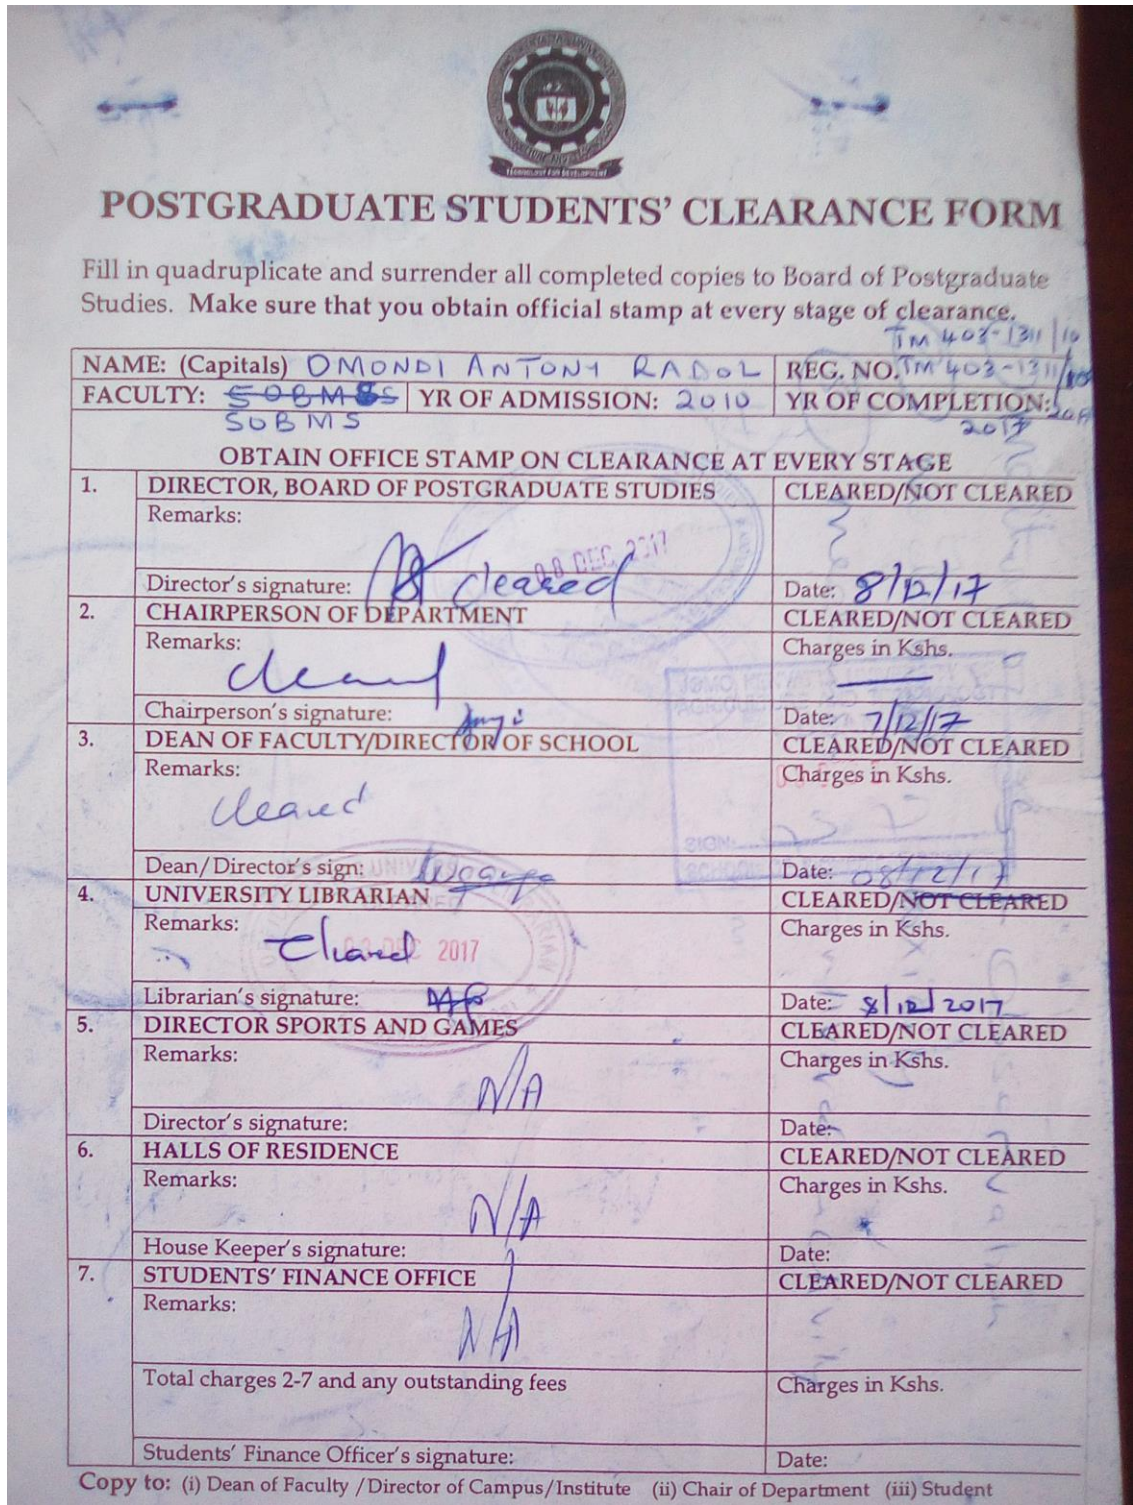 TECHNOLOGY FOR DEVELOPMENT
POSTGRADUATE STUDENTS' CLEARANCE FORM
Fill in quadruplicate and surrender all completed copies to Board of Postgraduate
Studies. Make sure that you obtain official stamp at every stage of clearance.
TM 403-1311/10
NAME: (Capitals) OMONDI ANTONY RADOL REG. NO. TM 403-1311/
FACULTY: SOBMS YR OF ADMISSION: 2010 YR OF COMPLETION:
SOBMS 2017
OBTAIN OFFICE STAMP ON CLEARANCE AT EVERY STAGE
1. DIRECTOR, BOARD OF POSTGRADUATE STUDIES CLEARED/NOT CLEARED
Remarks:
08 DEC 2017
Director's signature: cleared Date: 8/12/17
2. CHAIRPERSON OF DEPARTMENT CLEARED/NOT CLEARED
Remarks: Charges in Kshs.
cleared
Chairperson's signature: Date: 7/12/17
3. DEAN OF FACULTY/DIRECTOR OF SCHOOL CLEARED/NOT CLEARED
Remarks: Charges in Kshs.
cleared
SIGN:
Dean/Director's sign: Date: 08/12/17
4. UNIVERSITY LIBRARIAN CLEARED/NOT CLEARED
Remarks: Charges in Kshs.
cleared DEC 2017
Librarian's signature: Date: 8/12/2017
5. DIRECTOR SPORTS AND GAMES CLEARED/NOT CLEARED
Remarks: Charges in Kshs.
N/A
Director's signature: Date:
6. HALLS OF RESIDENCE CLEARED/NOT CLEARED
Remarks: Charges in Kshs.
N/A
House Keeper's signature: Date:
7. STUDENTS' FINANCE OFFICE CLEARED/NOT CLEARED
Remarks:
N/A
Total charges 2-7 and any outstanding fees Charges in Kshs.
Students' Finance Officer's signature: Date:
Copy to: (i) Dean of Faculty /Director of Campus/Institute (ii) Chair of Department (iii) Student